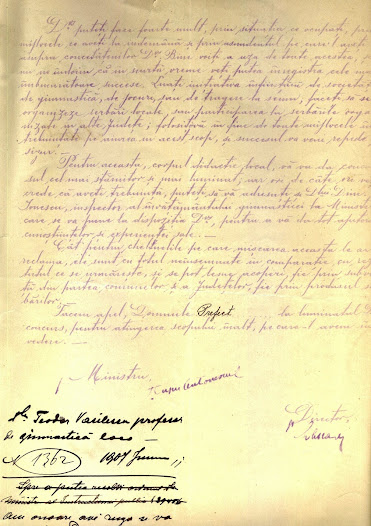 Dvs puteți face foarte mult, prin situația ce ocupați, prin
mijloacele ce aveți la îndemână și prin ascendentul pe care-l aveți
asupra concetățenilor Dv. Bine voiți a uza de toate acestea, și
nu mă îndoiesc că în scurtă vreme veți putea înregistra cele mai
îmbucurătoare succese. Luați inițiativa înființării de societăți
de gimnastică, de jocuri, sau de tragere la semn; faceți să se
organizeze serbări locale, sau participarea la serbările orga-
nizate în alte județe; folosiți-vă în fine de toate mijloacele în-
trebuințate pe aiurea în acest scop, și succesul va veni repede și
sigur.
Pentru aceasta, corpul didactic local, vă va da concur-
sul cel mai stăruitor și mai luminat, iar ori de câte ori veți
crede că aveți trebuință, puteți să vă adresați și D-lui Dim.
Ionescu, inspector al învățământului gimnasticei la Minister
care se va pune la dispoziția Dv, pentru a vă da tot ajutorul
cunoștințelor și experienței sale. —
Cât pentru cheltuelile pe care mișcarea aceasta le ar
reclama, ele sunt cu totul neînsemnate în comparație cu rezul-
tatul ce se urmărește, și se pot lesne acoperi, fie prin subven-
ții din partea comunelor și a județelor, fie prin produsul ser-
bărilor.
Facem apel, Domnule Prefect la luminatul Dv.
concurs, pentru atingerea scopului înalt, pe care-l avem în
vedere. —
p. Ministru,
Director,
Dlui Teodor Vasilescu profesor
de gimnastică loco —
N 1362 1907 Junie 11
am onoare a vă ruga se va